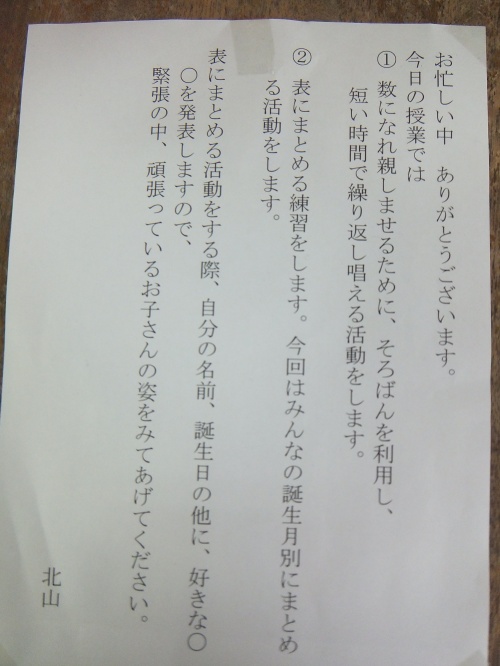 お忙しい中　ありがとうございます。
今日の授業では
① 数になれ親しませるために、そろばんを利用し、
短い時間で繰り返し唱える活動をします。
② 表にまとめる練習をします。今回はみんなの誕生月別にまとめ
る活動をします。
表にまとめる活動をする際、自分の名前、誕生日の他に、好きな〇
〇を発表しますので、
緊張の中、頑張っているお子さんの姿をみてあげてください。
北山